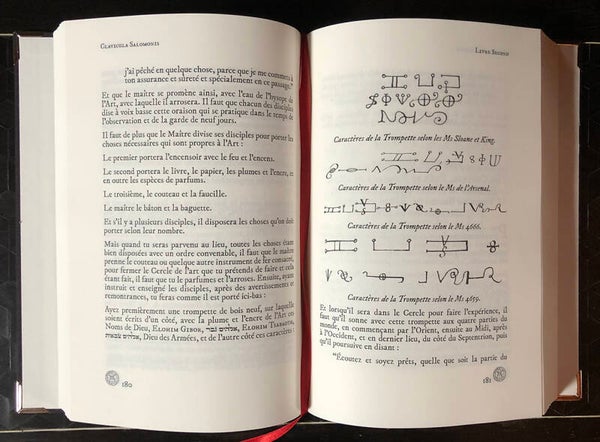 Clavicula Salomonis
j'ai péché en quelque chose, parce que je me commets à
ton assurance et sûreté et spécialement en ce passage."
Et que le maître se promène ainsi, avec l'eau de l'hysope de
l'Art, avec laquelle il arrosera. Il faut que chacun des disciples
dise à voix basse cette oraison qui se pratique dans le temps de
l'observation et de la garde de neuf jours.
Il faut de plus que le Maître divise ses disciples pour porter les
choses nécessaires qui sont propres à l'Art :
Le premier portera l'encensoir avec le feu et l'encens.
Le second portera le livre, le papier, les plumes et l'encre, et
en outre les espèces de parfums.
Le troisième, le couteau et la faucille.
Le maître le bâton et la baguette.
Et s'il y a plusieurs disciples, il disposera les choses qu'ils doivent
porter selon leur nombre.
Mais quand tu seras parvenu au lieu, toutes les choses étant
bien disposées avec un ordre convenable, il faut que le maître
prenne le couteau ou quelque autre instrument de fer consacré,
pour fermer le Cercle de l'art que tu prétends de faire et cela
étant fait, il faut que tu le parfumes et l'arroses. Ensuite, ayant
instruit et enseigné les disciples, après des avertissements et
remontrances, tu feras comme il est porté ici-bas :
Ayez premièrement une trompette de bois neuf, sur laquelle
soient écrits d'un côté, avec la plume et l'encre de l'Art ces
Noms de Dieu, Elohim Gibor, אלהים גבר, Elohim Tsabaoth,
אלהים צבאות, Dieu des Armées, et de l'autre côté ces caractères :
180
Livre Second
Caractères de la Trompette selon les Ms Sloane et King.
Caractères de la Trompette selon le Ms de l'Arsenal.
Caractères de la Trompette selon le Ms 4666.
Caractères de la Trompette selon le Ms 4659.
Et lorsqu'il sera dans le Cercle pour faire l'expérience, il
faut qu'il sonne avec cette trompette aux quatre parties du
monde, en commençant par l'Orient, ensuite au Midi, après
à l'Occident, et en dernier lieu, du côté du Septentrion, puis
qu'il poursuive en disant :
"Écoutez et soyez prêts, quelle que soit la partie du
181